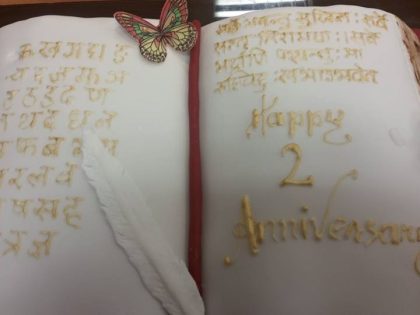 क ख ग घ ङ
च छ ज झ ञ
ट ठ ड ढ ण
त थ द ध न
फ ब भ म
य र ल व
ष स ह
त्र ज्ञ
सर्वे भवन्तु सुखिनः सर्वे
सन्तु निरामयाः । सर्वे
भद्राणि पश्यन्तु । मा
Happy
2
Anniversary